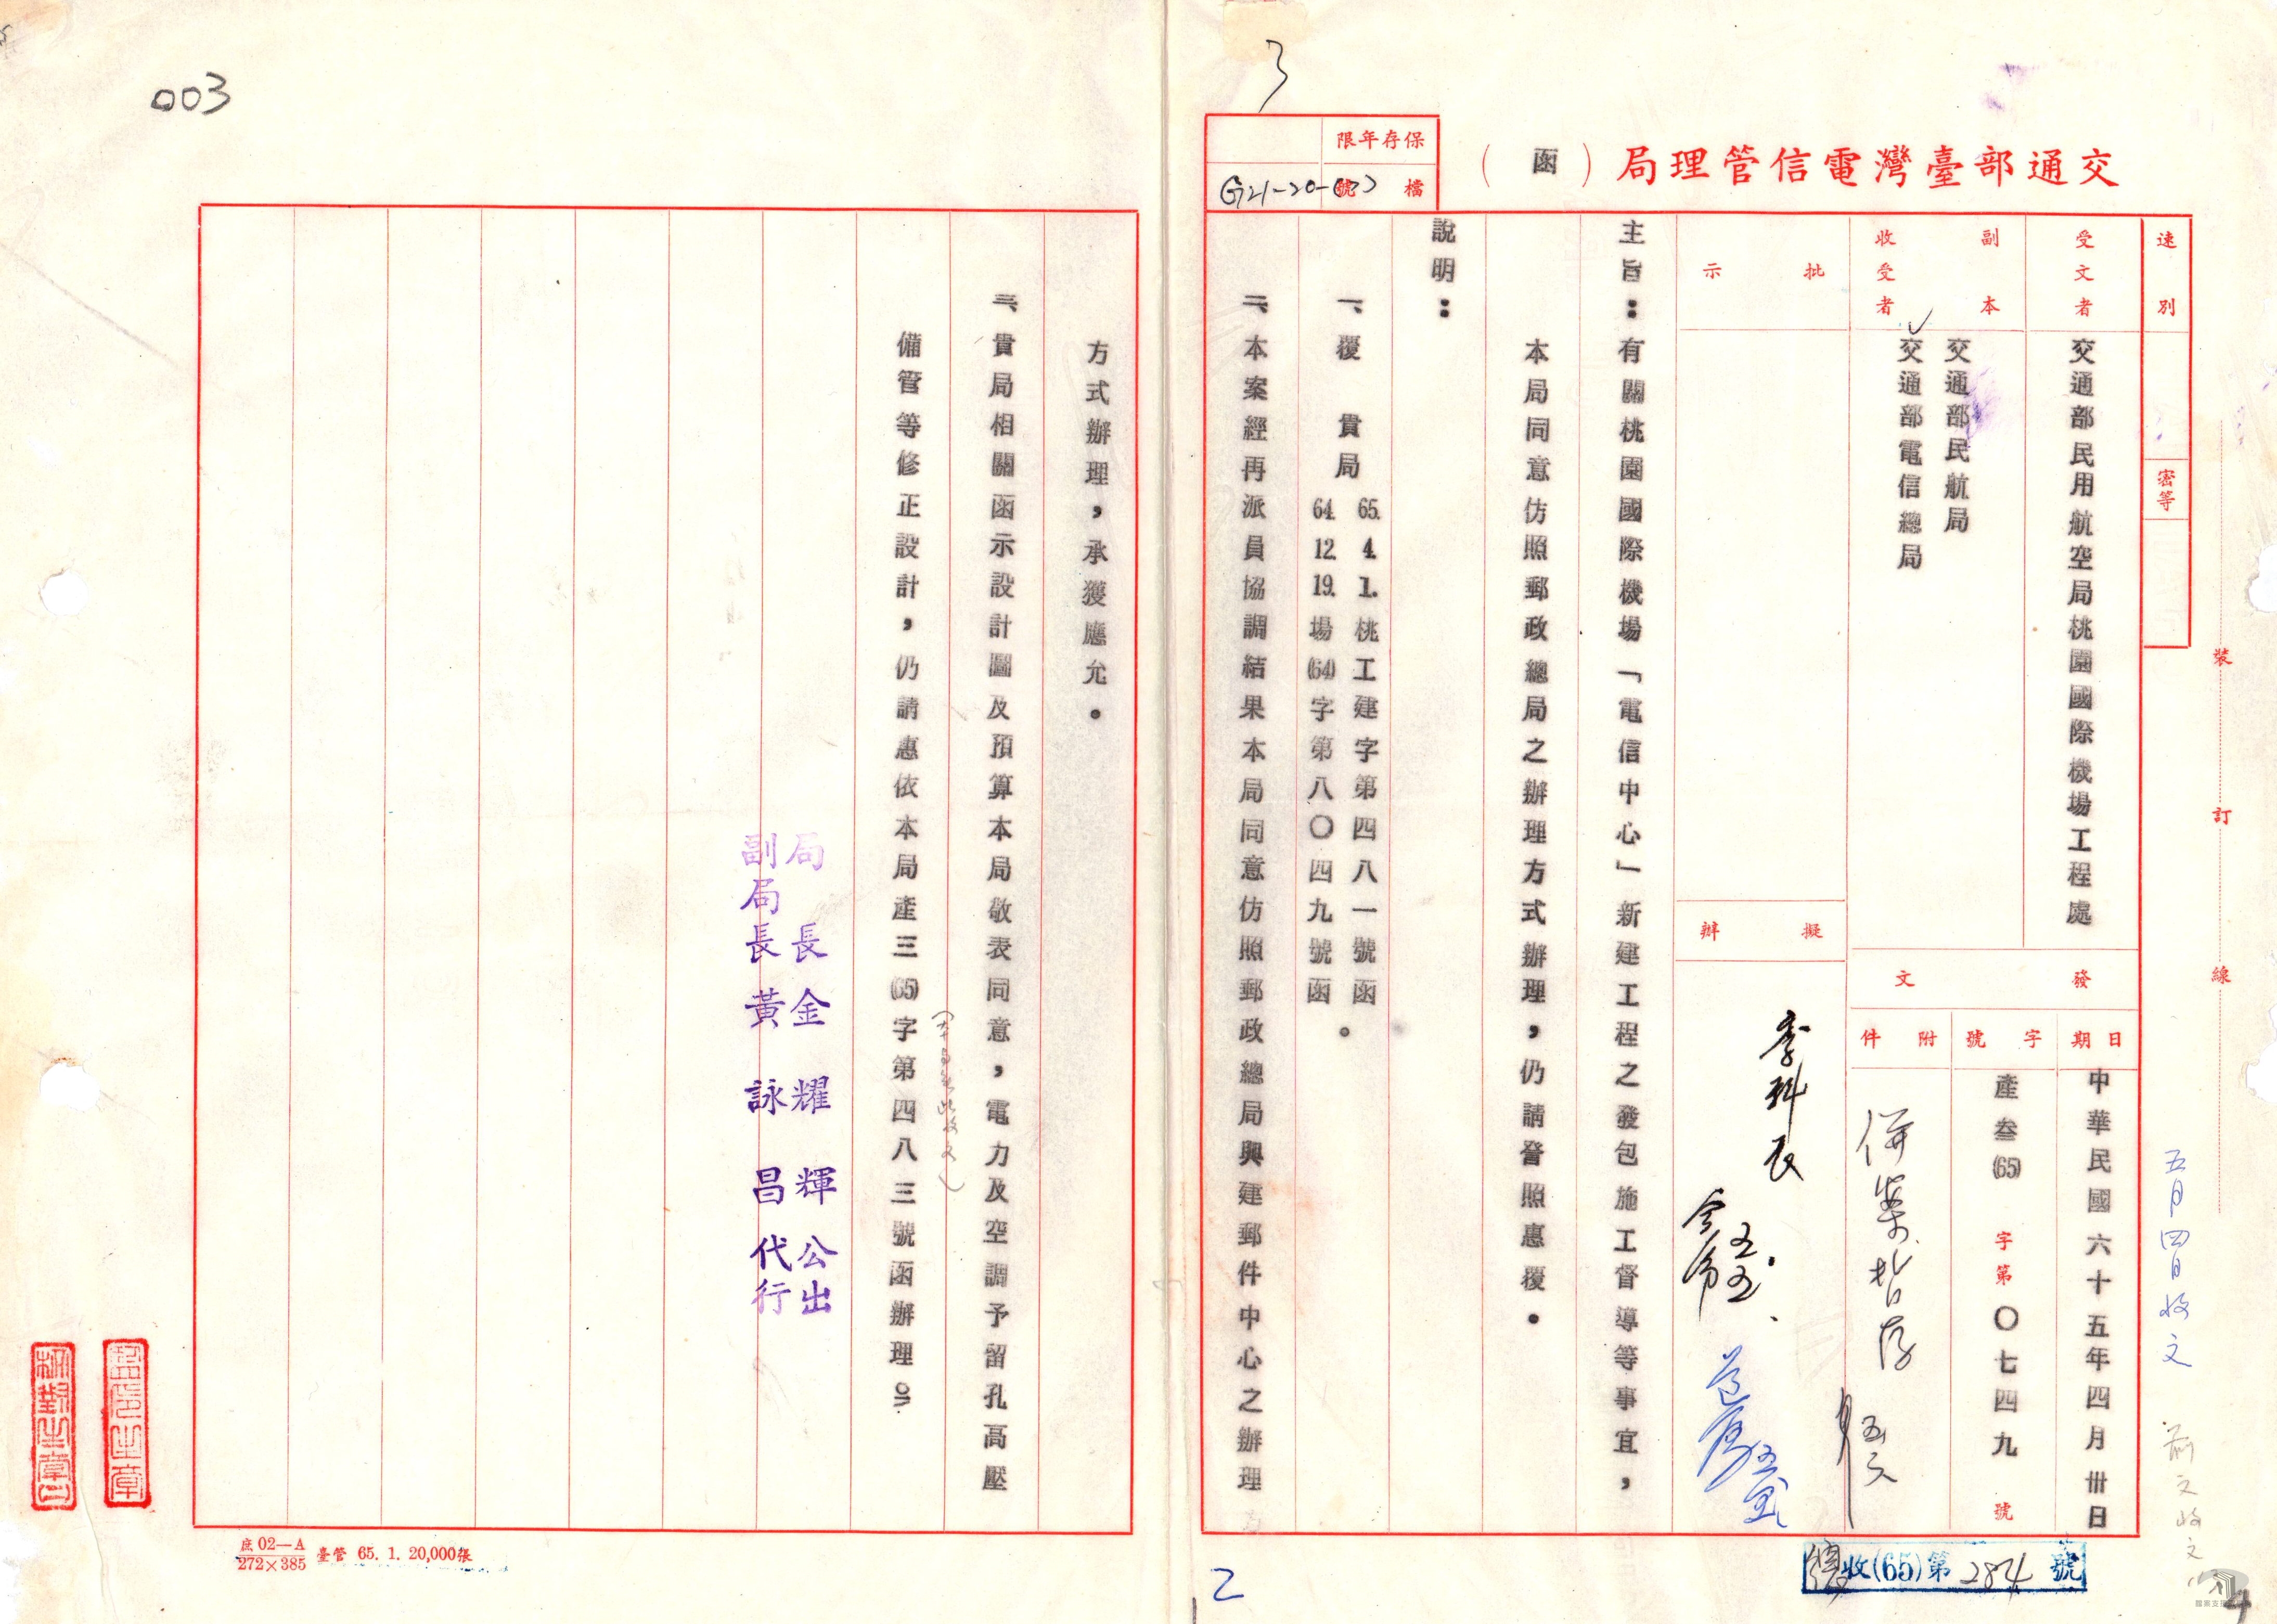 003
3
保存年限
檔號
G21-20-(7)
交通部臺灣電信管理局（函）
速別
密等
受文者
交通部民用航空局桃園國際機場工程處
副本收受者
交通部民航局
交通部電信總局
批示
擬辦
發文
日期
中華民國六十五年四月卅日
字號
產叁(65)字第〇七四九號
附件
併案暫存
李科長
主旨：有關桃園國際機場「電信中心」新建工程之發包施工督導等事宜，
本局同意仿照郵政總局之辦理方式辦理，仍請督照惠覆。
說明：
一、覆　貴局
65. 4. 1. 桃工建字第四八一號函
64. 12. 19. 場(64)字第八〇四九號函。
二、本案經再派員協調結果本局同意仿照郵政總局與建郵件中心之辦理
方式辦理，承獲應允。
三、貴局相關函示設計圖及預算本局敬表同意，電力及空調予留孔高壓
備管等修正設計，仍請惠依本局產三(65)字第四八三號函辦理。
局長金耀輝公出
副局長黃詠昌代行
監印之章
校對之章
裝訂線
五月四日收文
收(65)第2874號
庶02—A
272×385
臺管 65. 1. 20,000張
2
4